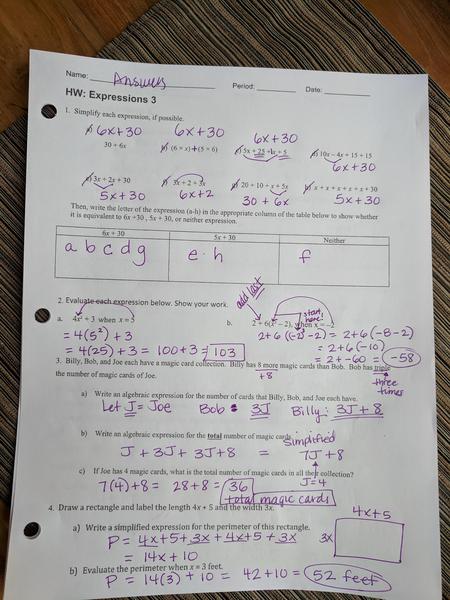 Name: Answers Period: ______ Date: ______
HW: Expressions 3
1. Simplify each expression, if possible.
a) 6x+30 6x+30 6x+30
30 + 6x b) (6 × x)+(5 × 6) c) 5x + 25 + x + 5 d) 10x – 4x + 15 + 15
6x+30
e) 3x + 2x + 30 f) 3x + 2 + 3x g) 20 + 10 + x + 5x h) x + x + x + x + x + 30
5x+30 6x+2 30 + 6x 5x+30
Then, write the letter of the expression (a-h) in the appropriate column of the table below to show whether
it is equivalent to 6x +30 , 5x + 30, or neither expression.
6x + 30 5x + 30 Neither
a b c d g e · h f
add last
2. Evaluate each expression below. Show your work.
start here!
a. 4x² + 3 when x = 5 b. 2 + 6(x³ – 2), when x = –2
= 4(5²) + 3 2+6(-2³-2) = 2+6(-8-2)
= 2+6(-10)
= 4(25)+3 = 100+3 = 103 = 2+-60 = -58
3. Billy, Bob, and Joe each have a magic card collection. Billy has 8 more magic cards than Bob. Bob has triple
+8
the number of magic cards of Joe.
three times
a) Write an algebraic expression for the number of cards that Billy, Bob, and Joe each have.
Let J = Joe Bob : 3J Billy: 3J + 8
b) Write an algebraic expression for the total number of magic cards.
Simplified
J + 3J + 3J+8 = 7J+8
c) If Joe has 4 magic cards, what is the total number of magic cards in all their collection?
J=4
7(4)+8 = 28+8 = 36
total magic cards
4. Draw a rectangle and label the length 4x + 5 and the width 3x.
4x+5
a) Write a simplified expression for the perimeter of this rectangle.
3x
P = 4x+5+3x+4x+5+3x
= 14x+10
b) Evaluate the perimeter when x = 3 feet.
P = 14(3)+10 = 42+10 = 52 feet